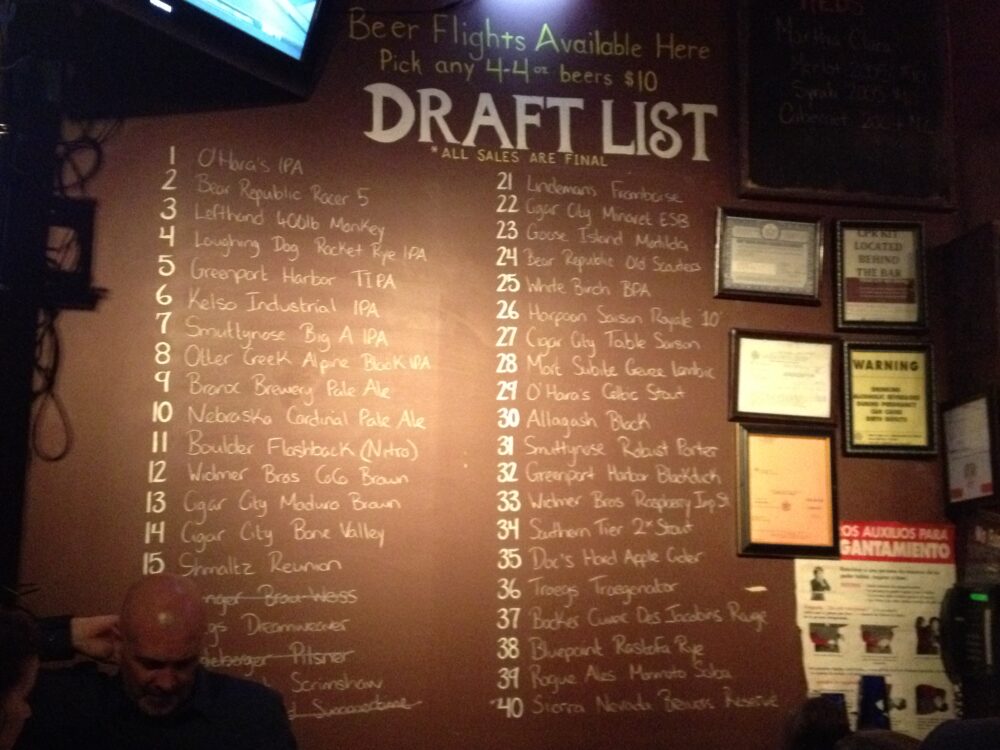 Beer Flights Available Here
Pick any 4-4oz beers $10
DRAFT LIST
*ALL SALES ARE FINAL
1 O'Hara's IPA
2 Bear Republic Racer 5
3 Lefthand 400lb Monkey
4 Laughing Dog Rocket Rye IPA
5 Greenport Harbor TIPA
6 Kelso Industrial IPA
7 Smuttynose Big A IPA
8 Otter Creek Alpine Black IPA
9 Bronx Brewery Pale Ale
10 Nebraska Cardinal Pale Ale
11 Boulder Flashback (Nitro)
12 Widmer Bros CoCo Brown
13 Cigar City Maduro Brown
14 Cigar City Bone Valley
15 Shmaltz Reunion
Brau-Weiss
Dreamweaver
Pilsner
Scrimshaw
21 Lindemans Framboise
22 Cigar City Minaret ESB
23 Goose Island Matilda
24 Bear Republic Old Scouters
25 White Birch BPA
26 Harpoon Saison Royale 10
27 Cigar City Table Saison
28 Mort Subite Geuze Lambic
29 O'Hara's Celtic Stout
30 Allagash Black
31 Smuttynose Robust Porter
32 Greenport Harbor Blackduck
33 Widmer Bros Raspberry Imp St
34 Southern Tier 2x Stout
35 Doc's Hard Apple Cider
36 Troegs Troegenator
37 Backer Cuvar Des Jacobins Rouge
38 Bluepoint Rastafa Rye
39 Rogue Ales Marmoto Salsa
40 Sierra Nevada Beavers Reserve
REDS
Martha Clara
Merlot
Syrah 2005
Cabernet
CPR KIT
LOCATED
BEHIND
THE BAR
WARNING
DRINKING
ALCOHOLIC BEVERAGES
DURING PREGNANCY
CAN CAUSE
BIRTH DEFECTS
OS AUXILIOS PARA
GANTAMIENTO